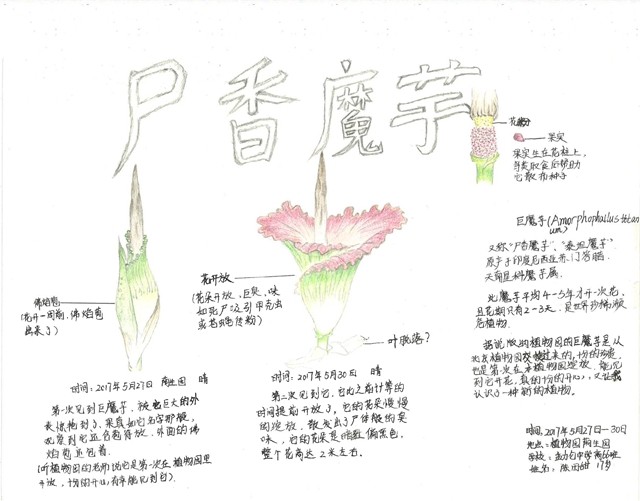 尸香魔芋
花粉
果实
果实生在花柱上,
鸟类取食后帮助
它散布种子
巨魔芋(Amorphophallus titan
um)
又称"尸香魔芋"、"泰坦魔芋"
原产于印度尼西亚苏门答腊
天南星科魔芋属
此魔芋平均4-5年才开一次花,
且花期只有2-3天,是世界珍稀濒
危植物.
的植物园的巨魔芋是从
北京植物园
也是第一次在本植物园绽放,能见
到它开花,真的十分的开心,又让我
认识了一种新的植物。
佛焰苞
(花开一周前,佛焰苞
出来了)
花开放
(花朵开放,巨臭,味
如死尸吸引甲壳虫
或苍蝇传粉)
叶脱落?
时间:2017年5月27日 晴
第一次见到巨魔芋,被它巨大的外
表惊艳到了,果真如它名字那般,
现看到它还含苞待放,外面的佛
焰苞还包着.
(听植物园的老师说它是第一次在植物园里
开放,十分的开心,有幸能见到它)
时间:2017年5月30日 晴
第二次见到它,它比之前计算的
时间提前开放了,它的花朵慢慢
的绽放,散发出了尸体般的臭
味,它的花朵是暗红偏黑色,
整个花高达2米左右。
时间:2017年5月27日—30日
地点:植物园
学校:
姓名: